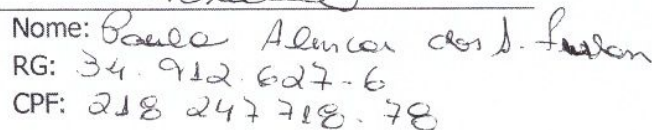 Nome: Paula Alencar dos S.
RG: 34.912.627-6
CPF: 218 247 718.78